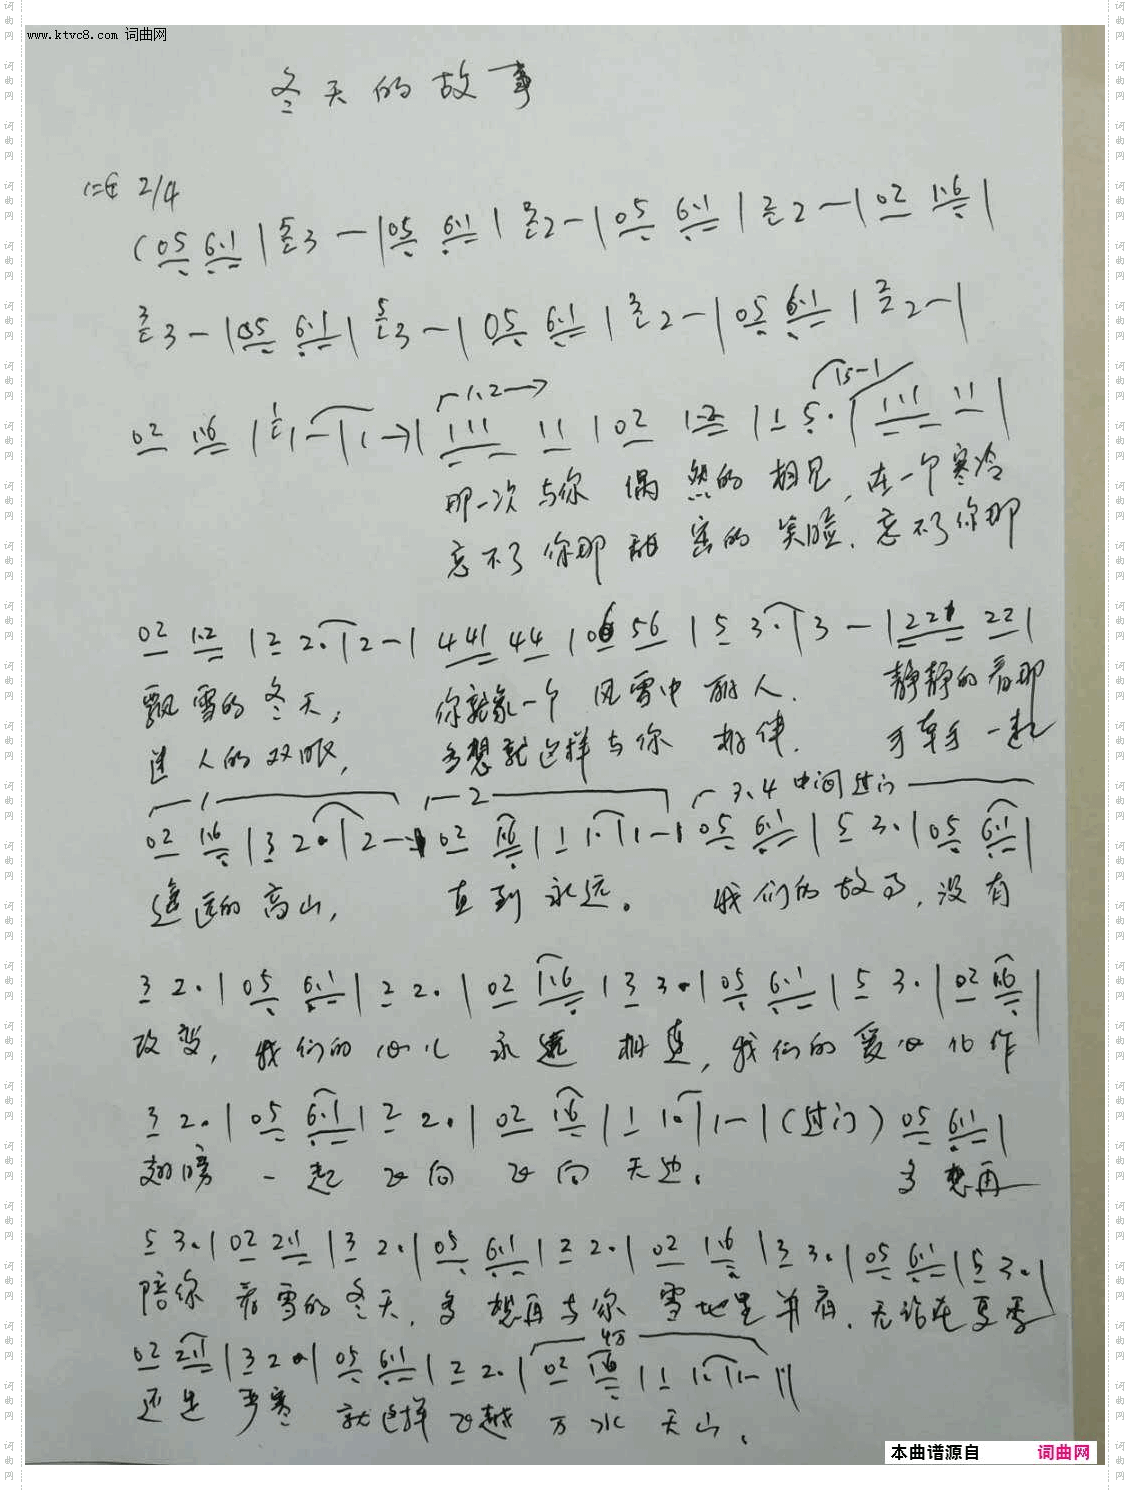 www.ktvc8.com 词曲网
冬天的故事
1=E 2/4
(05 6·1 | 3 — | 05 6·1 | 2 — | 05 6·1 | 2 — | 02 1·6 |
3 — | 05 6·1 | 3 — | 05 6·1 | 2 — | 05 6·1 | 2 — |
02 1·6 | 1 — | 1 —) | 111 11 | 02 1·2 | 1 5· | 111 11 |
那一次与你 偶然的相见，在一个寒冷
忘不了你那甜蜜的笑脸，忘不了你那
02 1·2 | 2 2· | 2 — | 441 44 | 06 56 | 5 3· | 3 — | 221 22 |
飘雪的冬天， 你就象一个风雪中丽人． 静静的看那
迷人的双眼， 多想就这样与你相伴． 手牵手一起
1 2 3.4 中间过门
02 1·6 | 3 2· | 2 — | 02 1·6 | 1 1· | 1 — | 05 6·1 | 5 3· | 05 6·1 |
遥远的高山， 直到永远。 我们的故事，没有
3 2· | 05 6·1 | 2 2· | 02 1·6 | 3 3· | 05 6·1 | 5 3· | 02 1·6 |
改变，我们的心儿永远相连，我们的爱心化作
3 2· | 05 6·1 | 2 2· | 02 1·6 | 1 1· | 1 — | (过门) 05 6·1 |
翅膀一起飞向飞向天边． 多想再
5 3· | 02 2·1 | 3 2· | 05 6·1 | 2 2· | 02 1·6 | 3 3· | 05 6·1 | 5 3· |
陪你看雪的冬天，多想再与你雪地里并肩．无论在夏季
02 2·1 | 3 2· | 05 6·1 | 2 2· | 02 1·6 | 1 1· | 1 — ‖
还是严寒就这样飞越万水千山．
本曲谱源自 词曲网